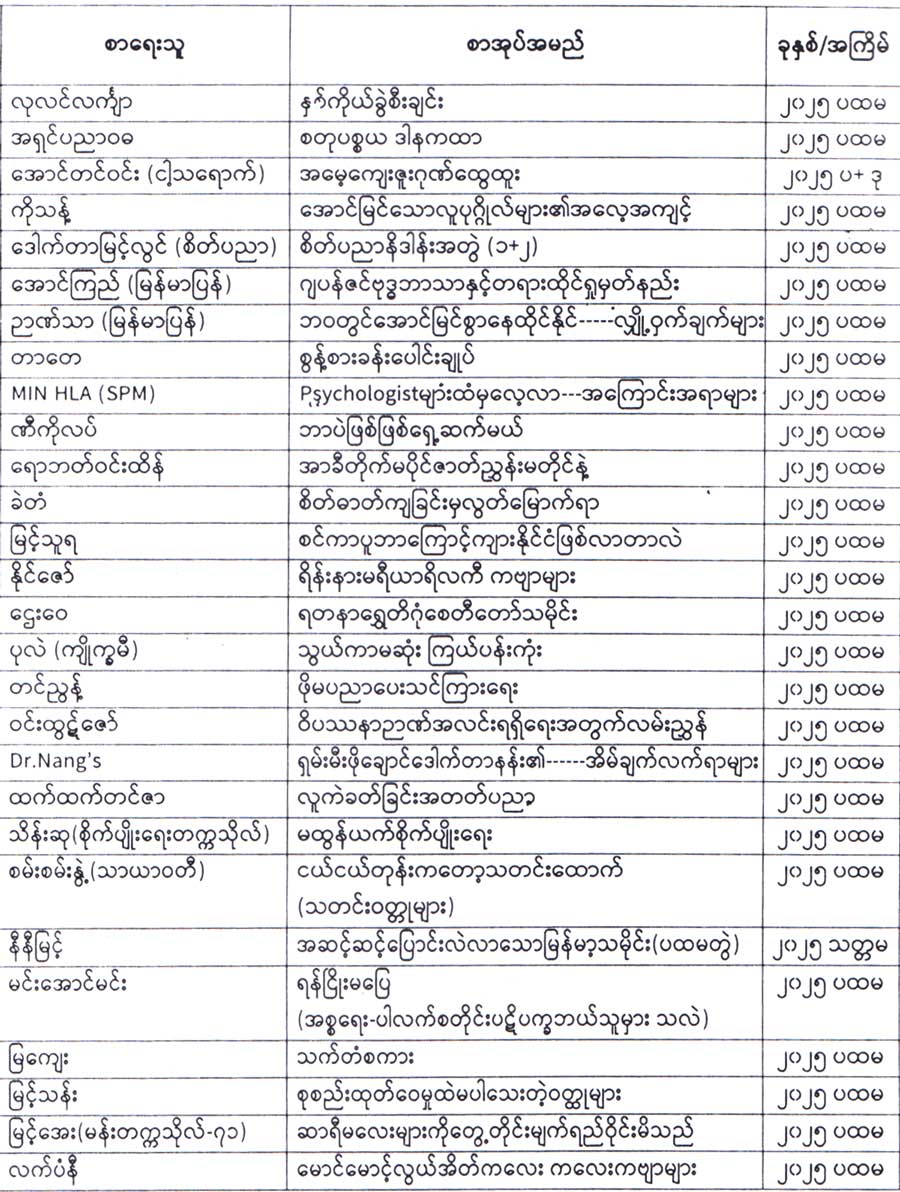 စာရေးသူ စာအုပ်အမည် ခုနှစ်/အကြိမ်
လုလင်လင်္ကျာ နှစ်ကိုယ်ခွဲစီးချင်း ၂၀၂၅ ပထမ
အရှင်ပညာဝဓ စတုပစ္စယ ဒါနကထာ ၂၀၂၅ ပထမ
အောင်တင်ဝင်း (ငါ့သရောက်) အမေ့ကျေးဇူးဂုဏ်ထွေထူး ၂၀၂၅ ပ+ ဒု
ကိုသန့် အောင်မြင်သောလူပုဂ္ဂိုလ်များ၏အလေ့အကျင့် ၂၀၂၅ ပထမ
ဒေါက်တာမြင့်လွင် (စိတ်ပညာ) စိတ်ပညာနိဒါန်းအတွဲ (၁+၂) ၂၀၂၅ ပထမ
အောင်ကြည် (မြန်မာပြန်) ဂျပန်ဇင်ဗုဒ္ဓဘာသာနှင့်တရားထိုင်ရှုမှတ်နည်း ၂၀၂၅ ပထမ
ဉာဏ်သာ (မြန်မာပြန်) ဘဝတွင်အောင်မြင်စွာနေထိုင်နိုင်-----လျှို့ဝှက်ချက်များ ၂၀၂၅ ပထမ
တာတေ စွန့်စားခန်းပေါင်းချုပ် ၂၀၂၅ ပထမ
MIN HLA (SPM) Psychologistများထံမှလေ့လာ---အကြောင်းအရာများ ၂၀၂၅ ပထမ
ဏီကိုလပ် ဘာပဲဖြစ်ဖြစ်ရှေ့ဆက်မယ် ၂၀၂၅ ပထမ
ရောဘတ်ဝင်းထိန် အာခီတိုက်မပိုင်ဇာတ်ညွှန်းမတိုင်နဲ့ ၂၀၂၅ ပထမ
ခဲတံ စိတ်ဓာတ်ကျခြင်းမှလွတ်မြောက်ရာ ၂၀၂၅ ပထမ
မြင့်သူရ စင်ကာပူဘာကြောင့်ကျားနိုင်ငံဖြစ်လာတာလဲ ၂၀၂၅ ပထမ
နိုင်ဇော် ရိန်းနားမရီယာရိလကီ ကဗျာများ ၂၀၂၅ ပထမ
ဌေးဝေ ရတနာရွှေတိဂုံစေတီတော်သမိုင်း ၂၀၂၅ ပထမ
ပုလဲ (ကျိုက္ခမီ) သွယ်ကာမဆုံး ကြယ်ပန်းကုံး ၂၀၂၅ ပထမ
တင်ညွန့် ဖိုမပညာပေးသင်ကြားရေး ၂၀၂၅ ပထမ
ဝင်းထွဋ်ဇော် ဝိပဿနာဉာဏ်အလင်းရရှိရေးအတွက်လမ်းညွှန် ၂၀၂၅ ပထမ
Dr.Nang's ရှမ်းမီးဖိုချောင်ဒေါက်တာနန်း၏------အိမ်ချက်လက်ရာများ ၂၀၂၅ ပထမ
ထက်ထက်တင်ဇာ လူကဲခတ်ခြင်းအတတ်ပညာ ၂၀၂၅ ပထမ
သိန်းဆု(စိုက်ပျိုးရေးတက္ကသိုလ်) မထွန်ယက်စိုက်ပျိုးရေး ၂၀၂၅ ပထမ
စမ်းစမ်းနွဲ့(သာယာဝတီ) ငယ်ငယ်တုန်းကတော့သတင်းထောက် ၂၀၂၅ ပထမ
(သတင်းဝတ္တုများ)
နီနီမြင့် အဆင့်ဆင့်ပြောင်းလဲလာသောမြန်မာ့သမိုင်း(ပထမတွဲ) ၂၀၂၅ သတ္တမ
မင်းအောင်မင်း ရန်ငြိုးမပြေ ၂၀၂၅ ပထမ
(အစ္စရေး-ပါလက်စတိုင်းပဋိပက္ခဘယ်သူမှား သလဲ)
မြကျေး သက်တံစကား ၂၀၂၅ ပထမ
မြင့်သန်း စုစည်းထုတ်ဝေမှုထဲမပါသေးတဲ့ဝတ္ထုများ ၂၀၂၅ ပထမ
မြင့်အေး(မန်းတက္ကသိုလ်-၇၁) ဆာရီမလေးများကိုတွေ့တိုင်းမျက်ရည်ဝိုင်းမိသည် ၂၀၂၅ ပထမ
လက်ပံနီ မောင်မောင့်လွယ်အိတ်ကလေး ကလေးကဗျာများ ၂၀၂၅ ပထမ